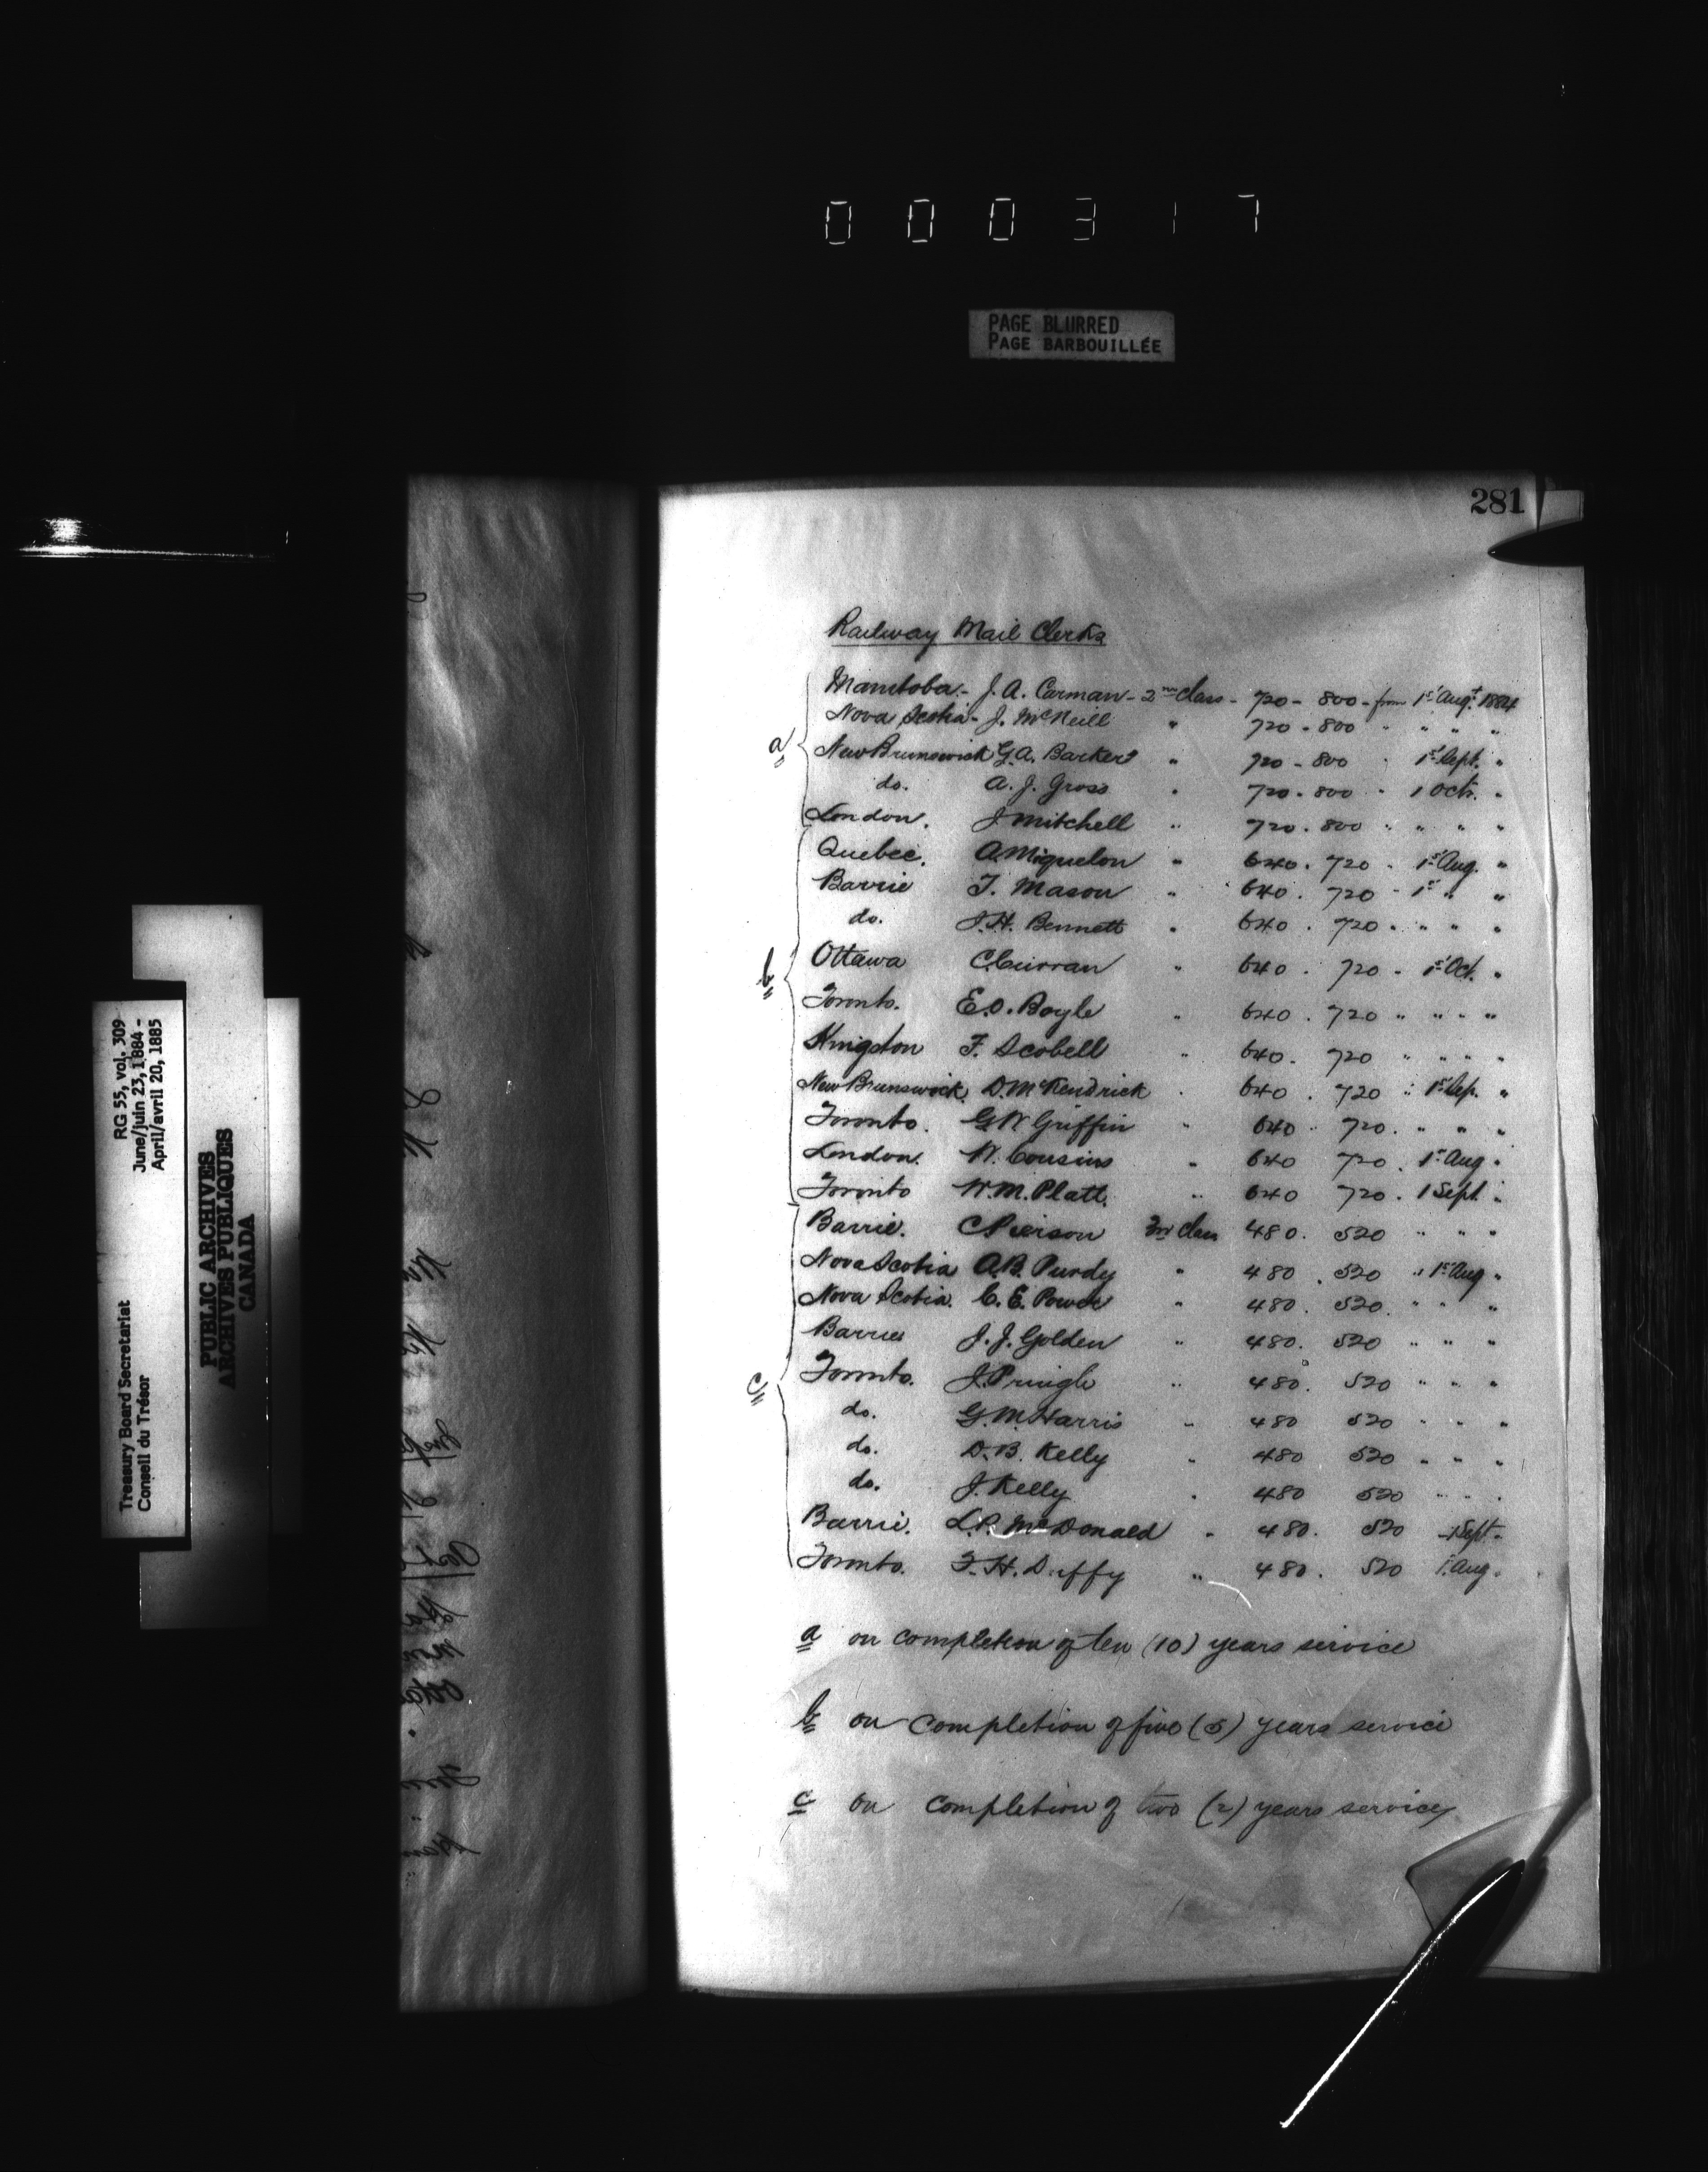 000317
PAGE BLURRED
PAGE BARBOUILLÉE
281
RG 55, vol. 309
June/juin 23, 1884 -
April/avril 20, 1885
Treasury Board Secretariat
Conseil du Trésor
PUBLIC ARCHIVES
ARCHIVES PUBLIQUES
CANADA
Railway Mail Clerks
a
Manitoba - J. A. Carman - 2nd class - 720 - 800 - from 1st Augt 1884
Nova Scotia - J. McNeill " 720 - 800 - " " "
New Brunswick G.A. Barker " 720 - 800 " 1st Sept. "
do. A. J. Gross " 720 - 800 " 1 Oct. "
London. J Mitchell " 720 . 800 " " " "
b
Quebec. A Miquelon " 640 . 720 - 1st Aug. "
Barrie T. Mason " 640 . 720 - 1st " "
do. J. H. Bennett " 640 . 720 " " " "
Ottawa C Curran " 640 . 720 - 1st Oct. "
Toronto. E.O. Boyle " 640 . 720 " " " "
Kingston F. Scobell " 640 . 720 " " " "
New Brunswick. D. McKendrick " 640 . 720 " 1st Sep. "
Toronto. G W Griffin " 640 . 720 . " " "
London. W. Cousins " 640 720 . 1st Aug "
Toronto W. M. Platt. " 640 720 . 1 Sept. "
c
Barrie. C Pierson 3rd class 480 . 520 " " "
Nova Scotia A.B. Purdy " 480 . 520 " 1st Aug "
Nova Scotia. C. E. Power " 480 . 520 . " " "
Barrie J. J. Golden " 480 . 520 " " "
Toronto. J. Pringle " 480 . 520 " " "
do. G. M. Harris " 480 520 " " "
do. D. B. Kelly " 480 520 " " "
do. J. Kelly " 480 520 " " "
Barrie. L.P. McDonald " 480 . 520 1 Sept. "
Toronto. F. H. Duffy " 480 . 520 1. Aug "
a on completion of ten (10) years service
b on completion of five (5) years service
c on completion of two (2) years service